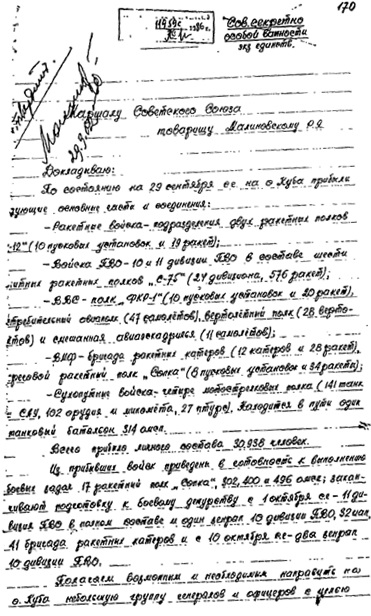 170
Сов. секретно
особой важности
экз единств.
Маршалу Советского Союза
товарищу Малиновскому Р.Я.
29.9.
Докладываю:
По состоянию на 29 сентября с.г. на о. Куба прибыли
дующие основные части и соединения:
- Ракетные войска - подразделения двух ракетных полков
-12" (10 пусковых установок и 19 ракет);
- Войска ПВО - 10 и 11 дивизии ПВО в составе шести
нитных ракетных полков „С-75" (24 дивизиона, 576 ракет);
- ВВС - полк „ФКР-1" (10 пусковых установок и 20 ракет),
требительный авиаполк (47 самолётов), вертолётный полк (28 верто-
тов) и смешанная авиаэскадрилья (11 самолётов);
- ВМФ - бригада ракетных катеров (12 катеров и 28 ракет),
реговой ракетный полк „Сопка" (6 пусковых установок и 34 ракеты);
- Сухопутные войска - четыре мотострелковых полка (141 танк
САУ, 102 орудия и миномёта, 27 птурс). Находится в пути один
танковый батальон 314 омсп.
Всего прибыло личного состава 30.938 человек.
Из прибывших войск приведены в готовность к выполнению
боевых задач 17 ракетный полк „Сопка", 302, 400 и 496 омсп; закан-
чивают подготовку к боевому дежурству с 1 октября с.г. - 11 ди-
визия ПВО в полном составе и один зенрап 10 дивизии ПВО, 32 иап,
41 бригада ракетных катеров и с 10 октября с.г. - два зенрап
10 дивизии ПВО.
Полагаем возможным и необходимым направить на
о. Куба небольшую группу генералов и офицеров с целью